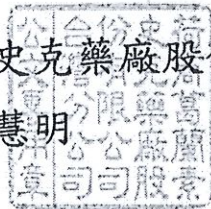 史克藥廠股
慧明
荷商葛蘭素
史克藥廠股
份有限公司
台灣分公司
公文專用章